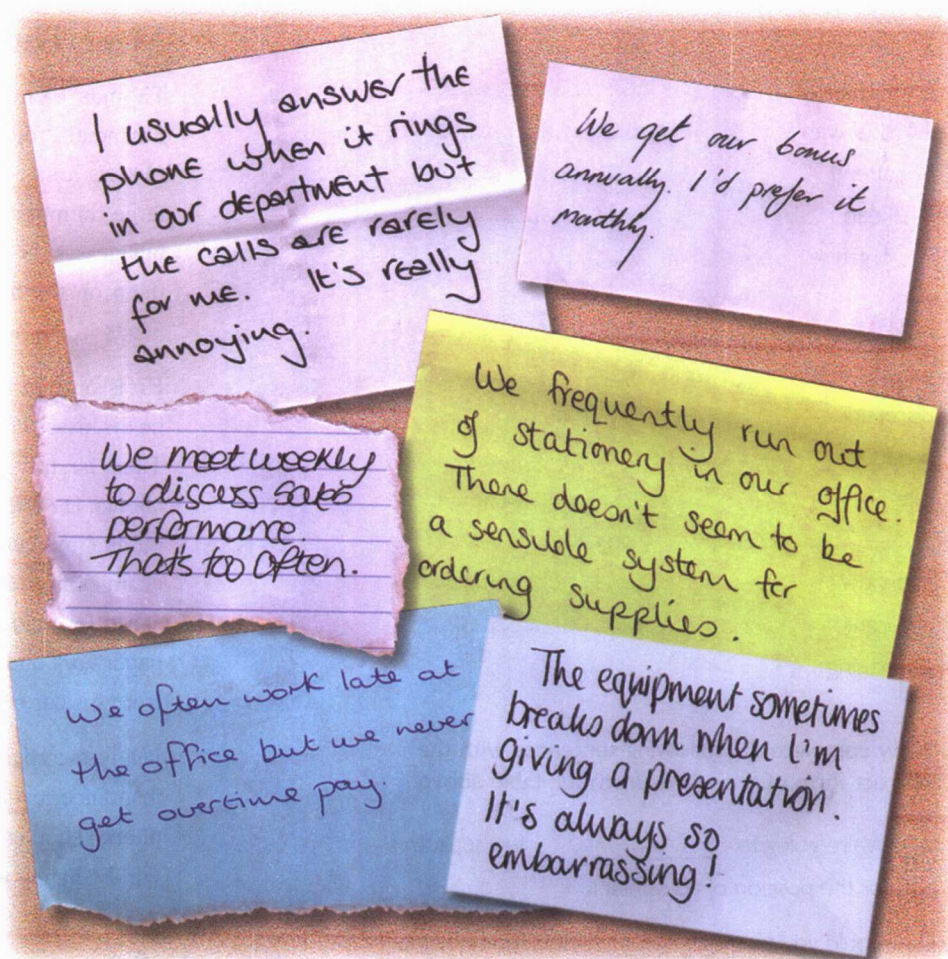 I usually answer the
phone when it rings
in our department but
the calls are rarely
for me. It's really
annoying.
We get our bonus
annually. I'd prefer it
monthly.
We meet weekly
to discuss sales
performance.
That's too often.
We frequently run out
of stationery in our office.
There doesn't seem to be
a sensible system for
ordering supplies.
We often work late at
the office but we never
get overtime pay.
The equipment sometimes
breaks down when I'm
giving a presentation.
It's always so
embarrassing!